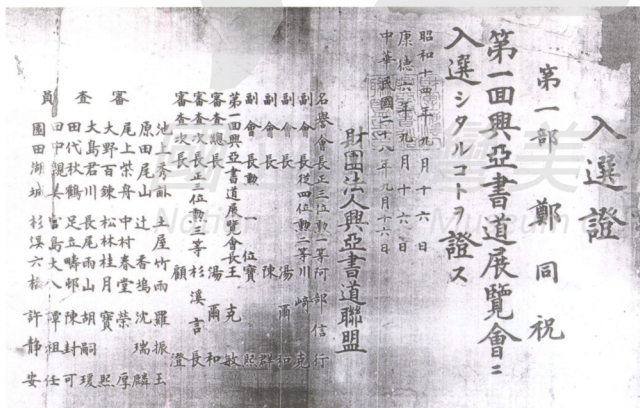 入選證
第一部 鄭同祝
第一回興亞書道展覽會ニ
入選シタルコトヲ證ス
昭和十四年九月十六日
康德六年九月十六日
中華民國二十八年九月十六日
財團法人興亞書道聯盟
名譽會長正三位勳一等阿部信行
副會長從四位勳二等川崎克
副會長 湯爾和
副會長 陳群
副會長勳一位寶熙
第一回興亞書道展覽會長王克敏
審查總長 湯爾和
審查次長正三位勳三等杉溪言長
審查次長 顧澄
審查員
池上秀畝 土屋竹雨 羅振玉
原田尾山 辻香塢 沈瑞麟
尾上柴舟 中村春堂 榮厚
大野百鍊 松林桂月 寶熙
大島君川 長尾雨山 胡嗣瑗
田代秋鶴 足立疇邨 陳封可
田中親美 宮島大八 譚祖任
園田湖城 杉溪六橋 許靜安